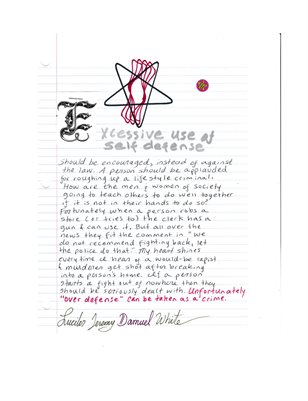 Excessive use of
self defense
should be encouraged, instead of against
the law. A person should be applauded
for roughing up a lifestyle criminal.
How are the men & women of society
going to teach others to do well together
if it is not in their hands to do so?
Fortunately when a person robs a
store (or tries to) the clerk has a
gun & can use it. But all over the
news they fit the comment in "we
do not recommend fighting back, let
the police do that." My heart shines
everytime I hear of a would-be rapist
& murderer get shot after breaking
into a person's home. If a person
starts a fight out of nowhere then they
should be seriously dealt with. Unfortunately
"over defense" can be taken as a crime.
Jeremy Damuel White